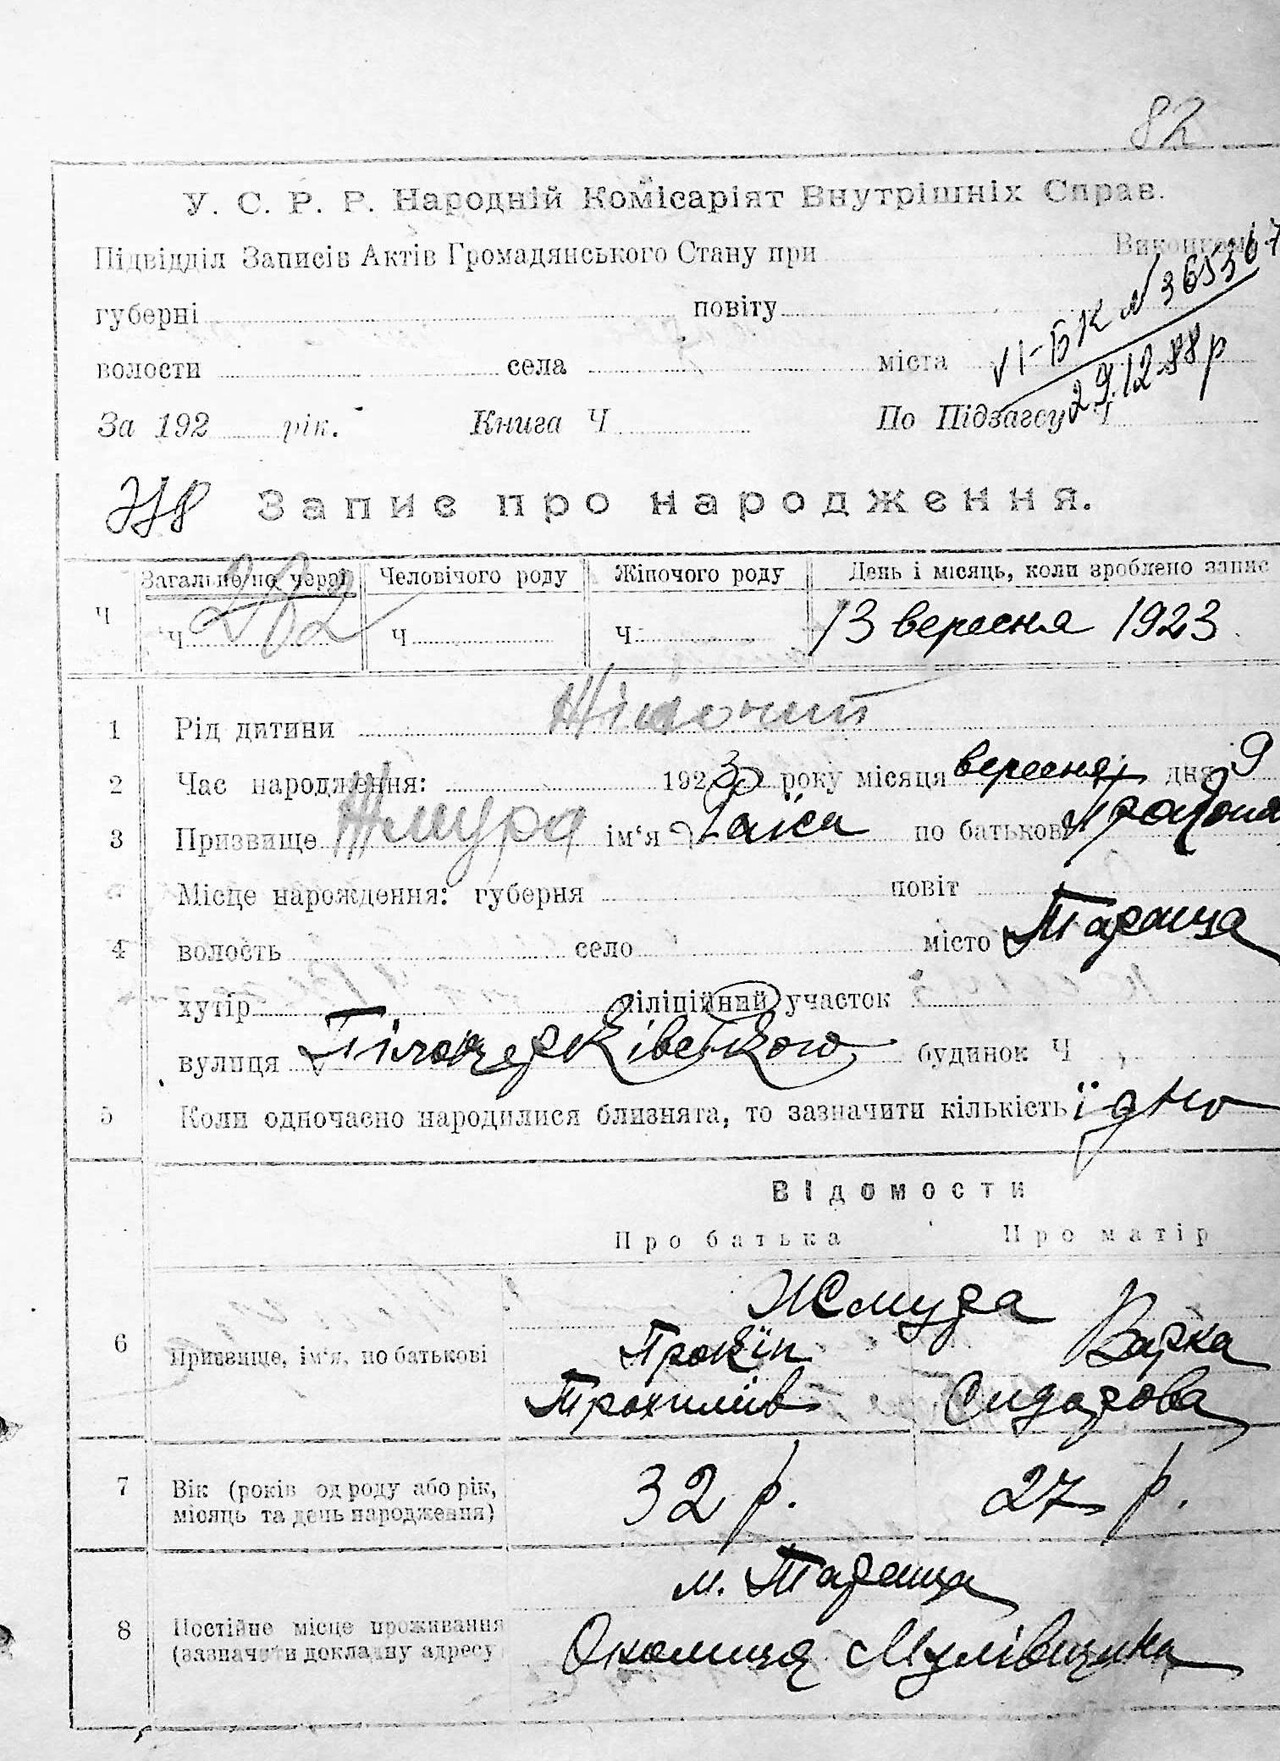 82
У. С. Р. Р. Народній Комісаріят Внутрішніх Справ.
Підвідділ Записів Актів Громадянського Стану при Виконкомі
губерні повіту
VI-БК № 365367
волости села міста
29.12.88 р
За 192 рік. Книга Ч По Підзагсу Ч
Запис про народження.
Ч Загально по черзі Человічого роду Жіночого роду День і місяць, коли зроблено запис
Ч 282 Ч Ч 13 вересня 1923
1 Рід дитини Жіночий
2 Час народження: 1923 року місяця вересня дня 9
3 Призвище Жмура ім‘я Раїса по батькові
Місце нарождення: губерня повіт
4 волость село місто Тараща
хутір міліційний участок
вулиця Білоцерківською будинок Ч
5 Коли одночасно народилися близнята, то зазначити кількість їдно
Відомости
Про батька Про матір
Жмура
6 Призвище, ім‘я, по батькові Прокіп Варка
Трохимів Сидорова
7 Вік (років од роду або рік, місяць та день народження) 32 р. 27 р.
м. Тараща
8 Постійне місце проживання (зазначити докладну адресу Околиця Мулівщина